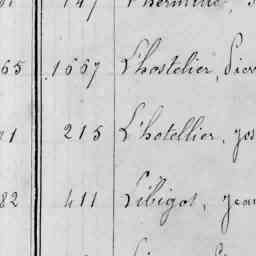 147 Lhermine
65 1667 L'hostelier, Pier
21 215 L'hotellier, Jos
82 411 Libigot, Jean